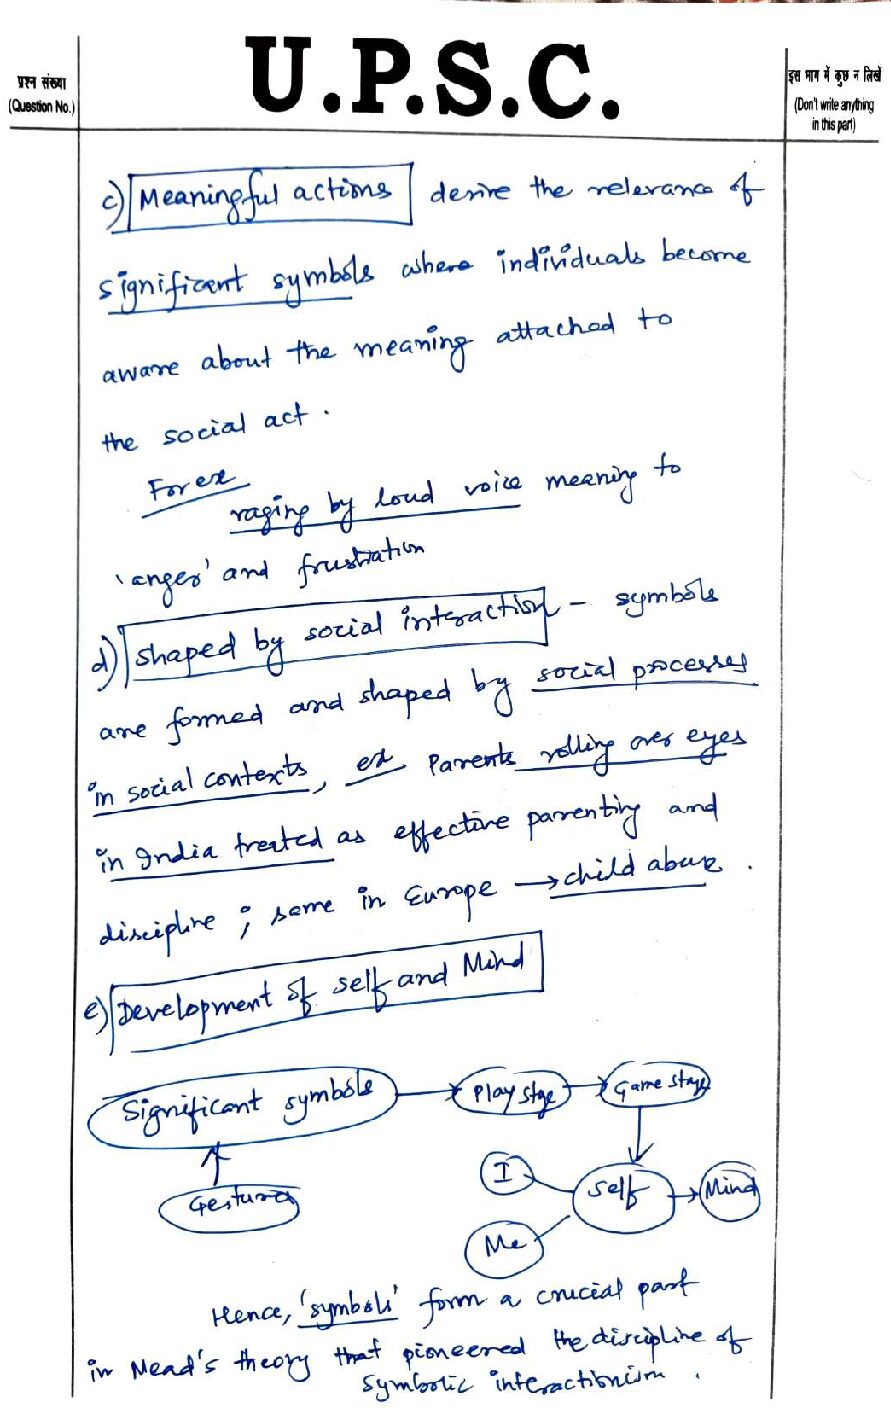 U.P.S.C.
प्रश्न संख्या
(Question No.)
इस भाग में कुछ न लिखें
(Don't write anything
in this part)
c) Meaningful actions desire the relevance of
significant symbols where individuals become
aware about the meaning attached to
the social act.
For ex
raging by loud voice meaning to
'anger' and frustration
d) shaped by social interaction - symbols
are formed and shaped by social processes
in social contexts, ex Parents rolling over eyes
in India treated as effective parenting and
discipline; same in Europe → child abuse.
e) Development of self and Mind
Significant symbols → Play stge → Game stage
Gestures
I
Self → Mind
Me
Hence, 'symbols' form a crucial part
in Mead's theory that pioneered the discipline of
symbolic interactionism.